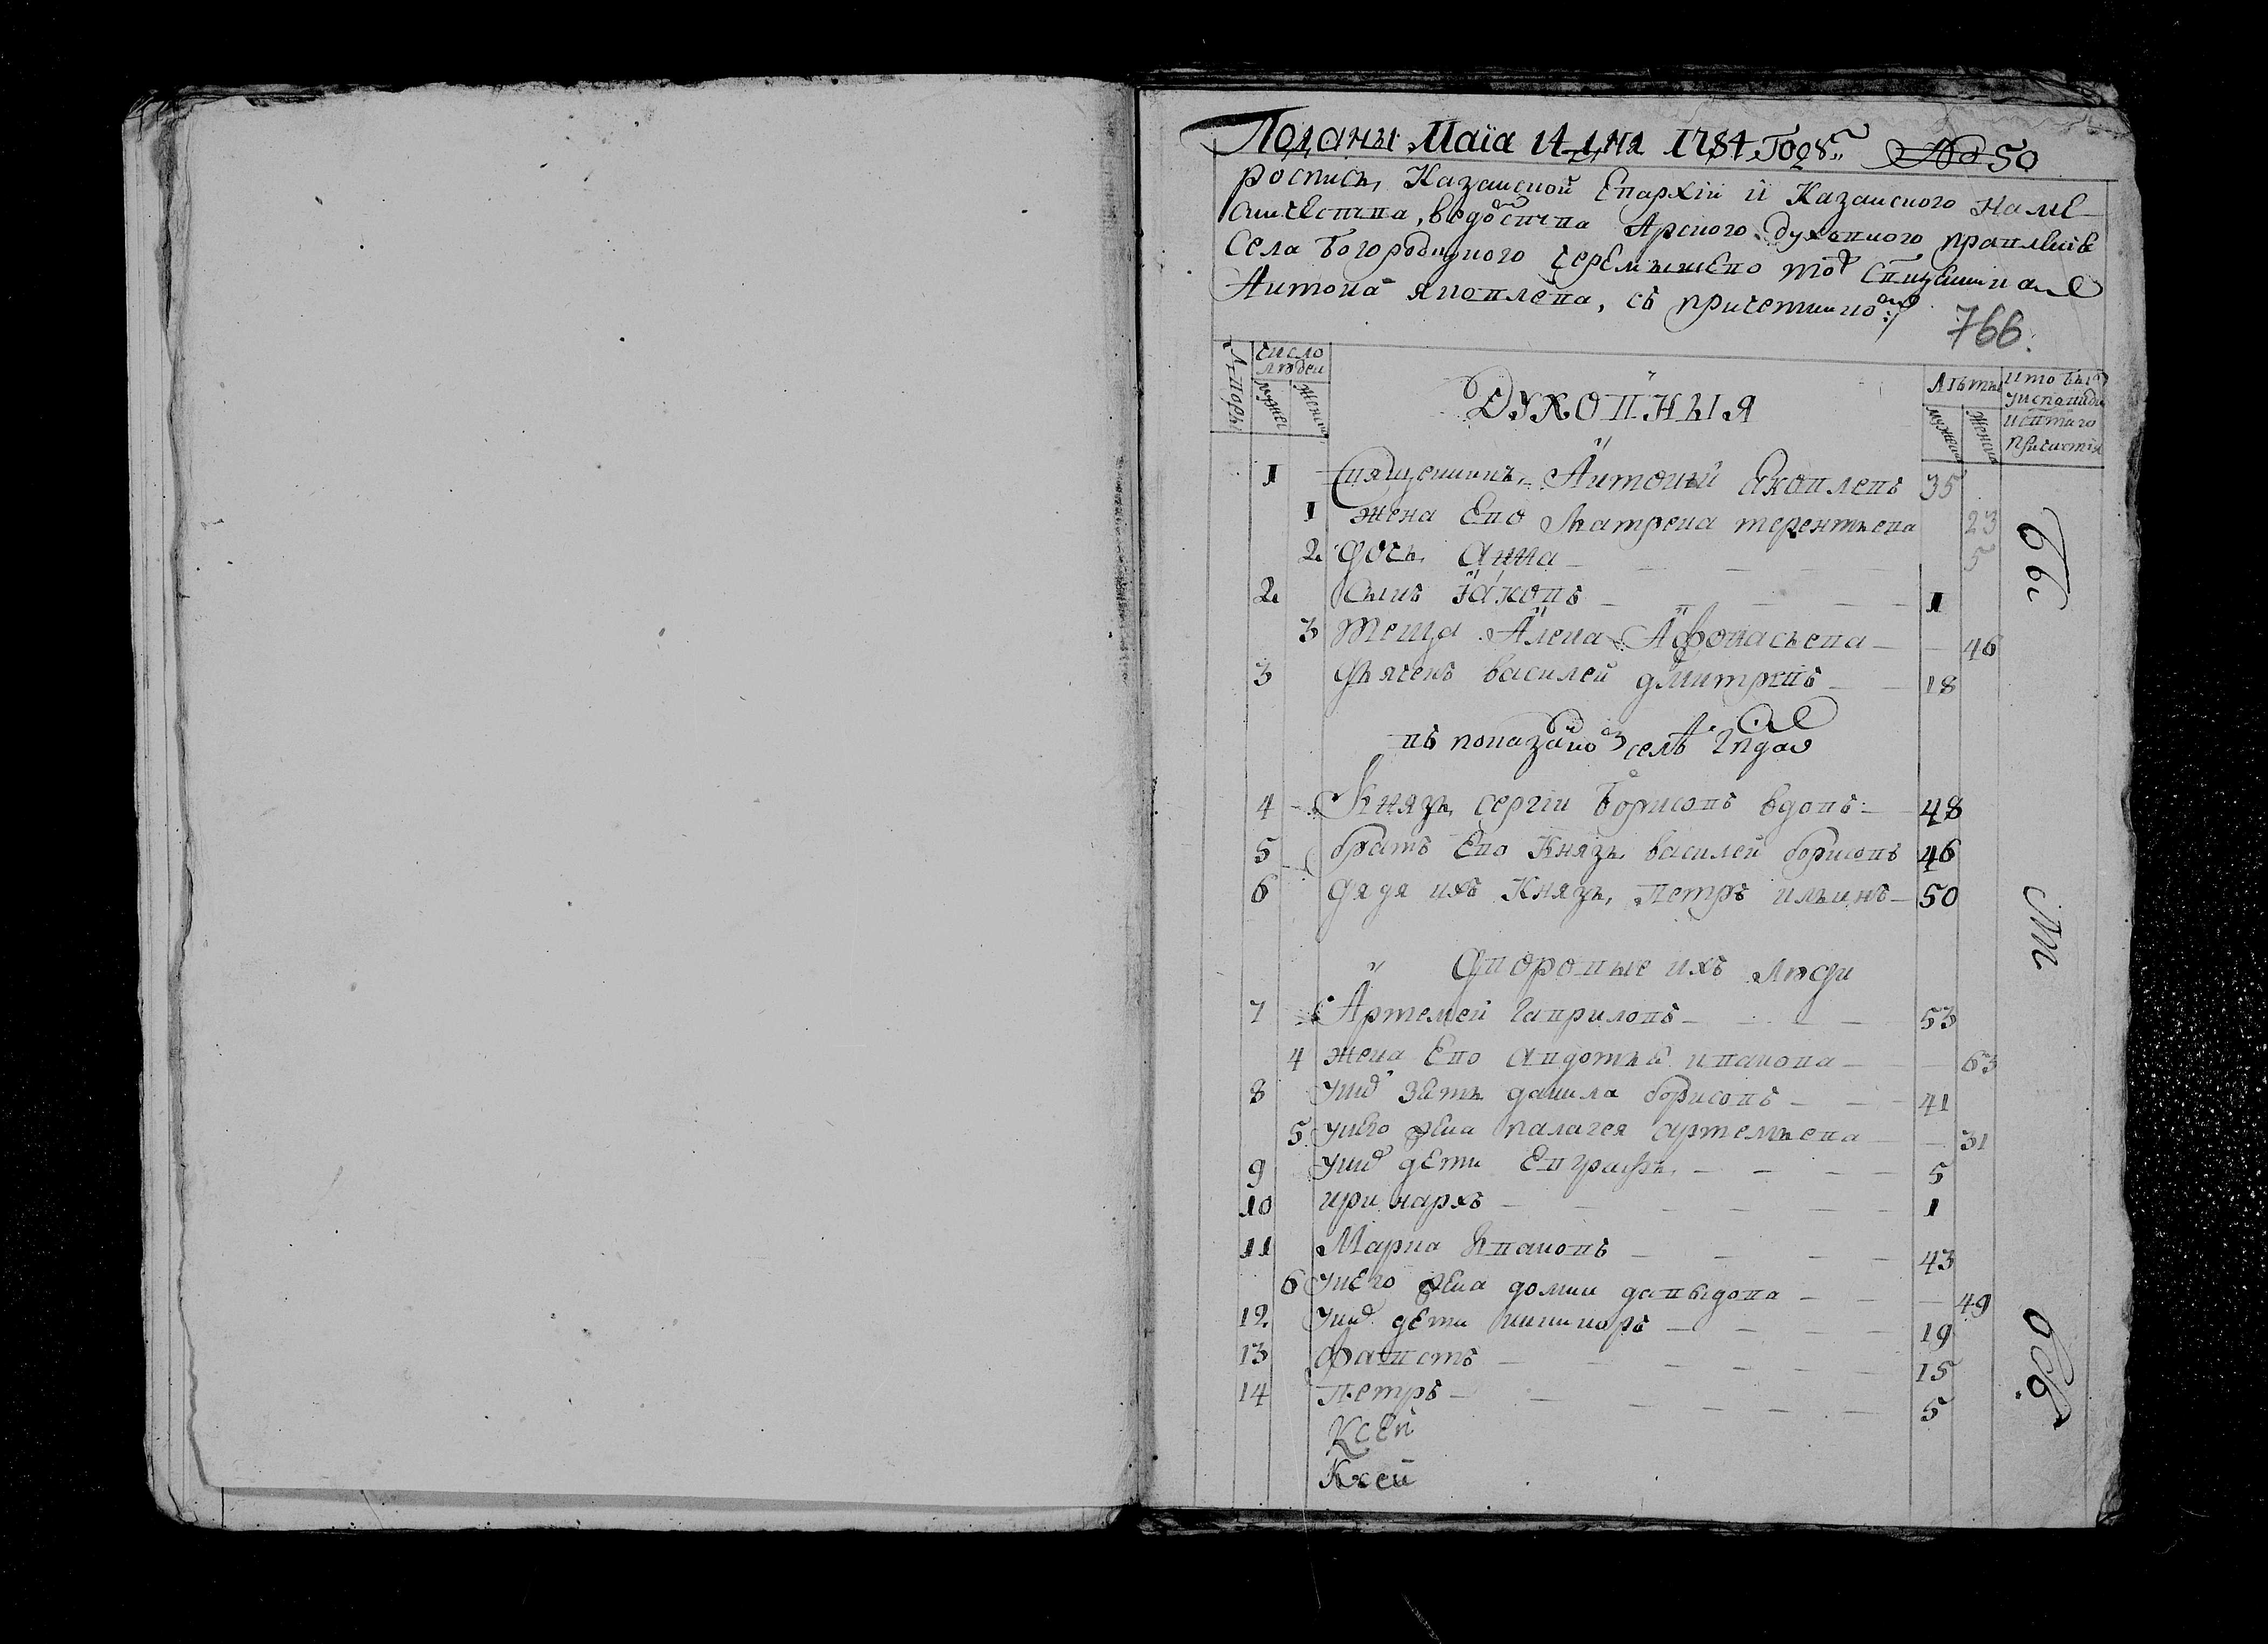 Поданы Маїа 14 дня 1784 Году № 50
роспись Казанской Епархіи и Казанского наме
стничества, ведомства Арского духовного правленія
Села Богородицкого Черемышево тож священника
Антона Яковлева, съ причетники
766.
Дворы
Число людей
мужес
женск
Духовныя
Лѣты
мужес
женск
кто был у исповѣди и свтаго причастія
1 Священникъ Антоний Яковлевъ 35
1 жена Ево Матрена терентьева 23
2 дочь Анна 5
2 сынъ Іаковъ 1
3 теща Алена Афонасьева 46
3 дьячекъ василей дмитревъ 18
въ показанно селѣ
4 Князь сергіи Борисовъ вдовъ 48
5 братъ Ево Князь василей борисовъ 46
6 дядя ихъ Князь Петръ ильинъ 50
Дворовые ихъ люди
7 Артемей Гавриловъ 53
4 жена Ево Авдотья ивановна 63
8 у них зеть данила борисовъ 41
5 у него жена палагея артемьева 31
9 у них дети Евграфъ 5
10 иринархъ 1
11 Марка Ивановъ 43
6 у него жена домни давыдова 49
12 у них дети никифоръ 19
13 Фавстъ 15
14 Петръ 5
Ксей
Ксей
бы
ли
всѣ